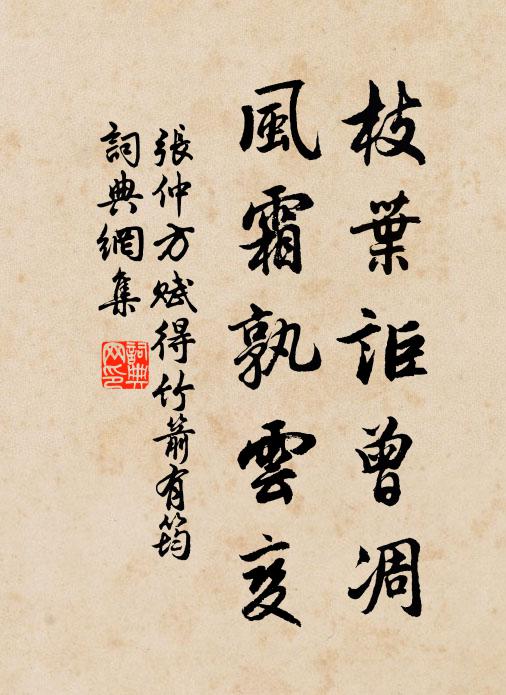 枝葉詎曾凋
風霜孰雲变
張仲方賦得竹箭有筠
詞典網集
詞典
网印